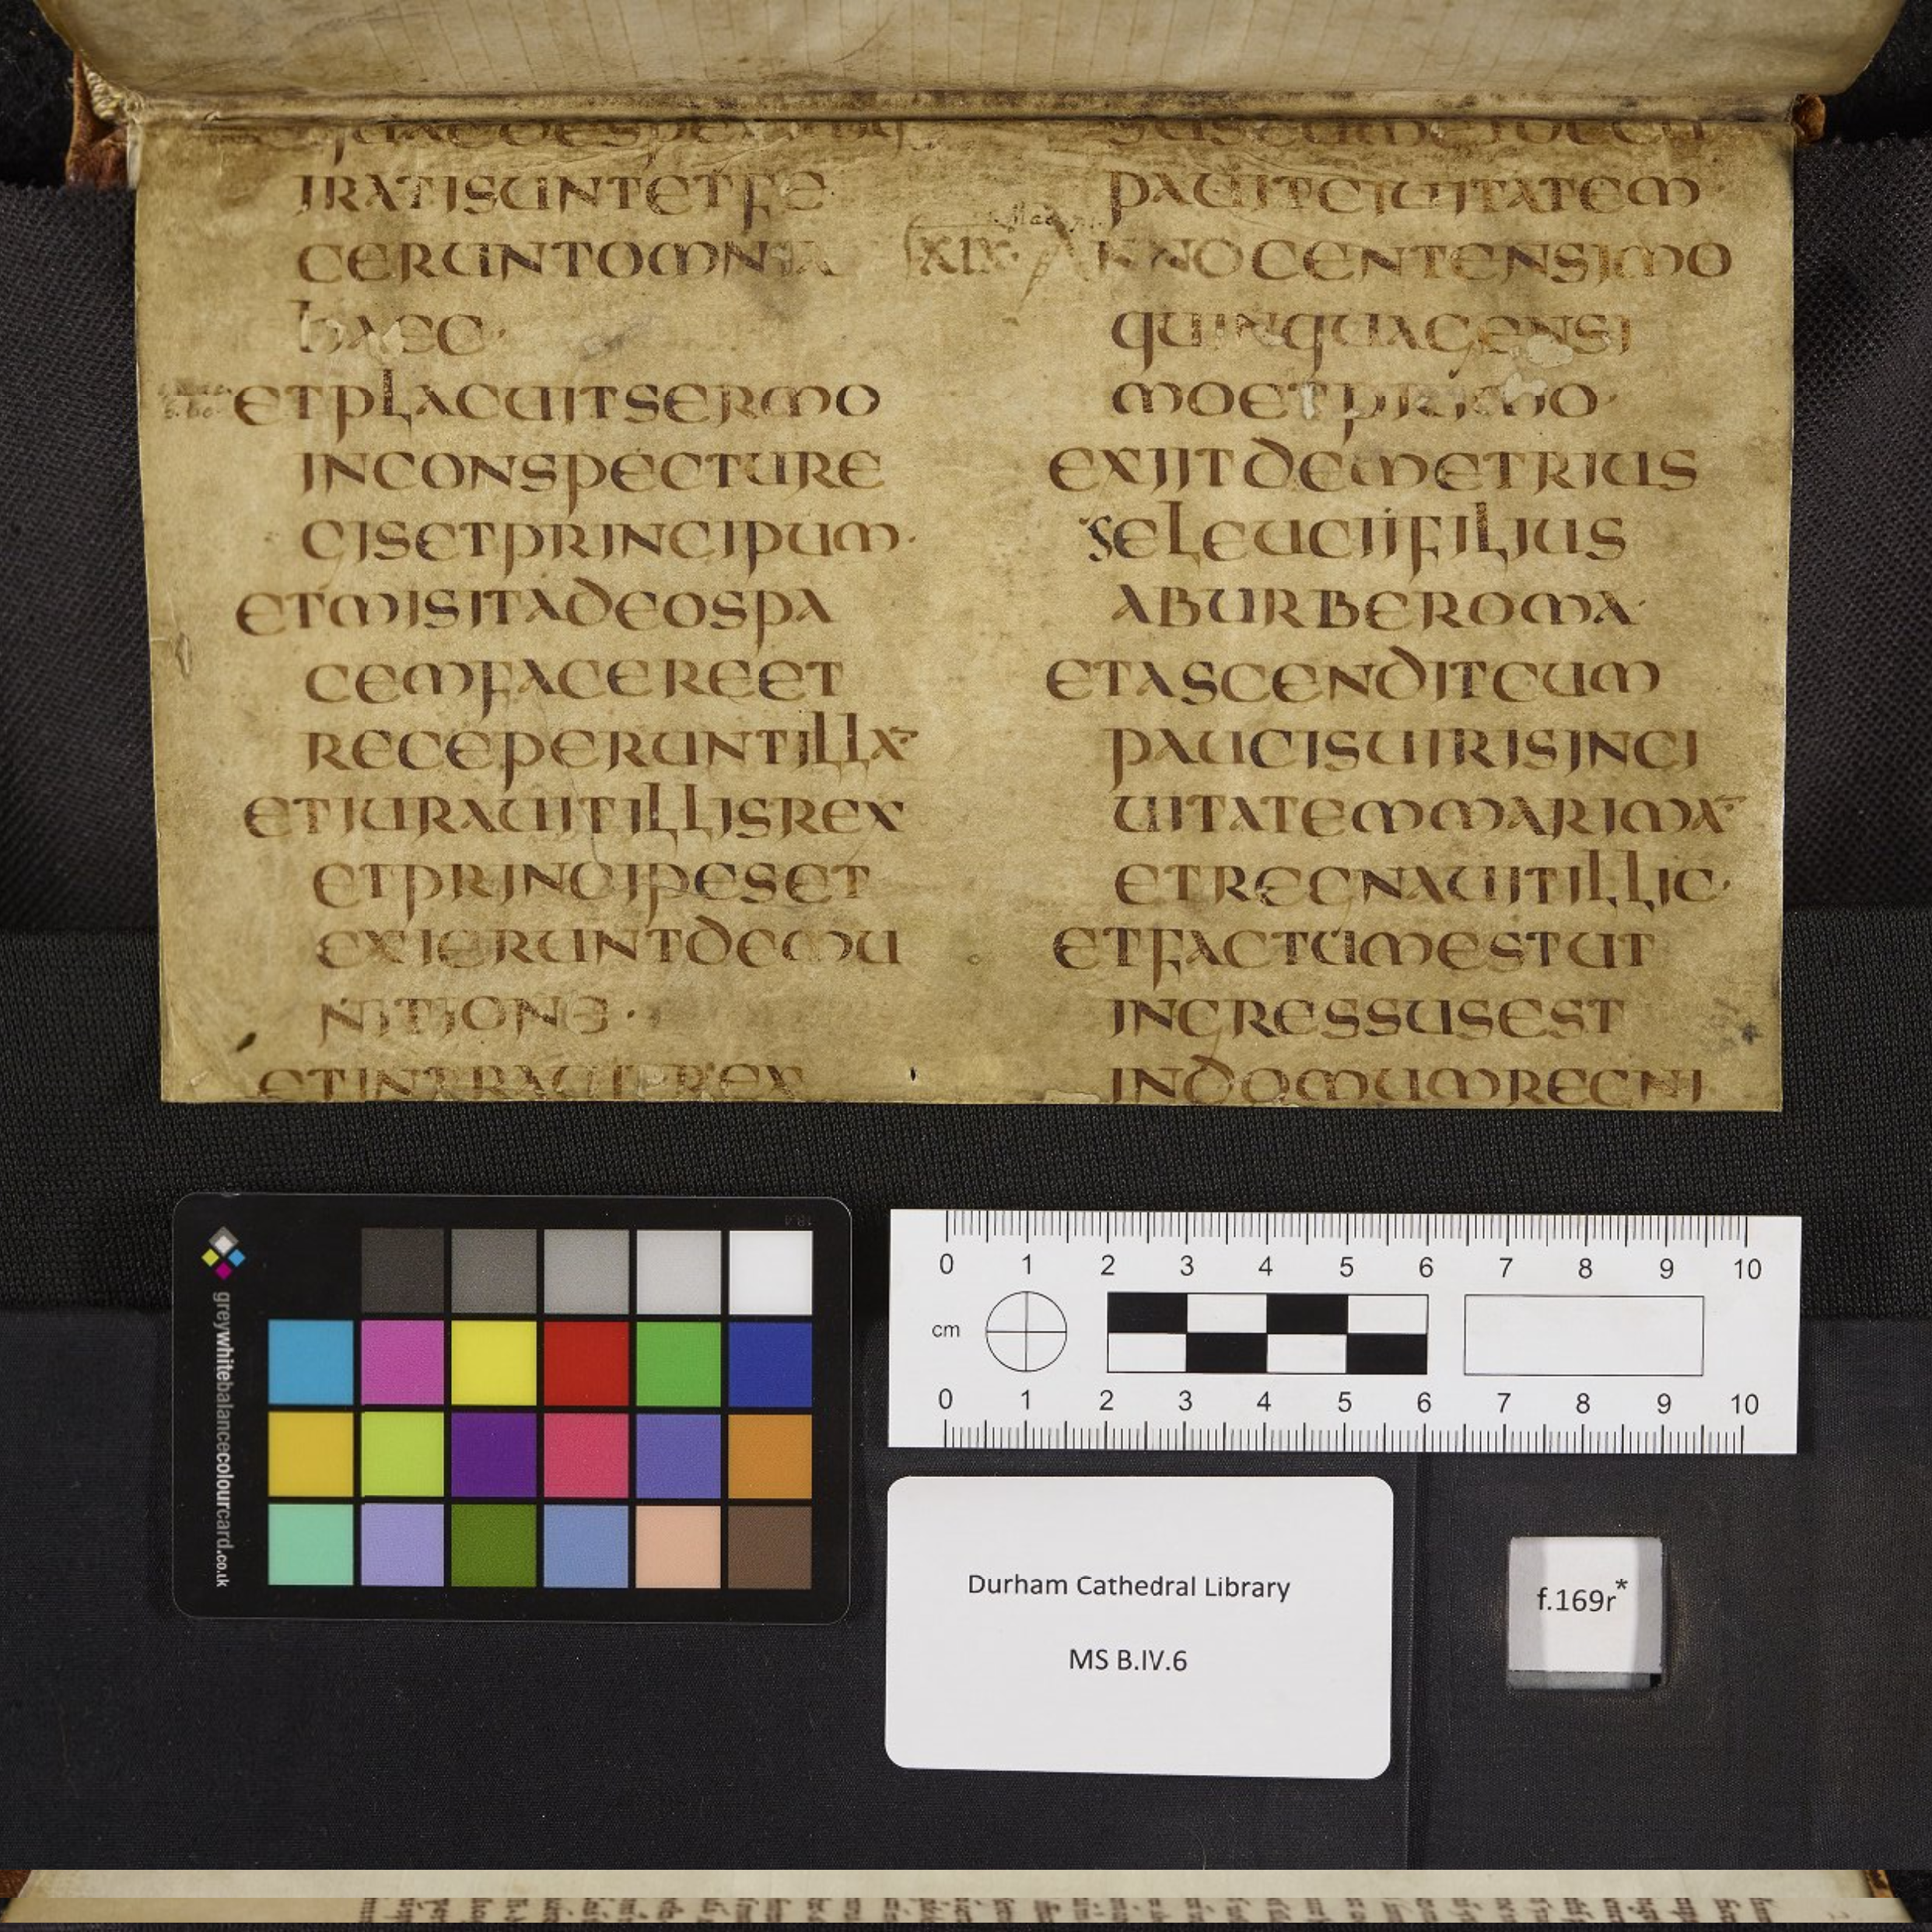 IRATISUNTETFE
CERUNTOMNIA
haec·
ETPLACUITSERMO
INCONSPECTURE
GISETPRINCIPUM·
ETMISITADEOSPA
CEMFACEREET
RECEPERUNTILLA
ETIURAUITILLISREX
ETPRINCIPESET
EXIERUNTDEMU
NITIONE·
ETINTRAUITREX
PAUITCIUITATEM
XIX· ANNOCENTENSIMO
QUINQUAGENSI
MOETPRIMO·
EXIITDEMETRIUS
SELEUCIIFILIUS
ABURBEROMA·
ETASCENDITCUM
PAUCISUIRISINCI
UITATEMMARIMA
ETREGNAUITILLIC·
ETFACTUMESTUT
INGRESSUSEST
INDOMUMREGNI
greywhitebalancecolourcard.co.uk
0 1 2 3 4 5 6 7 8 9 10
cm
0 1 2 3 4 5 6 7 8 9 10
Durham Cathedral Library
MS B.IV.6
f.169r*